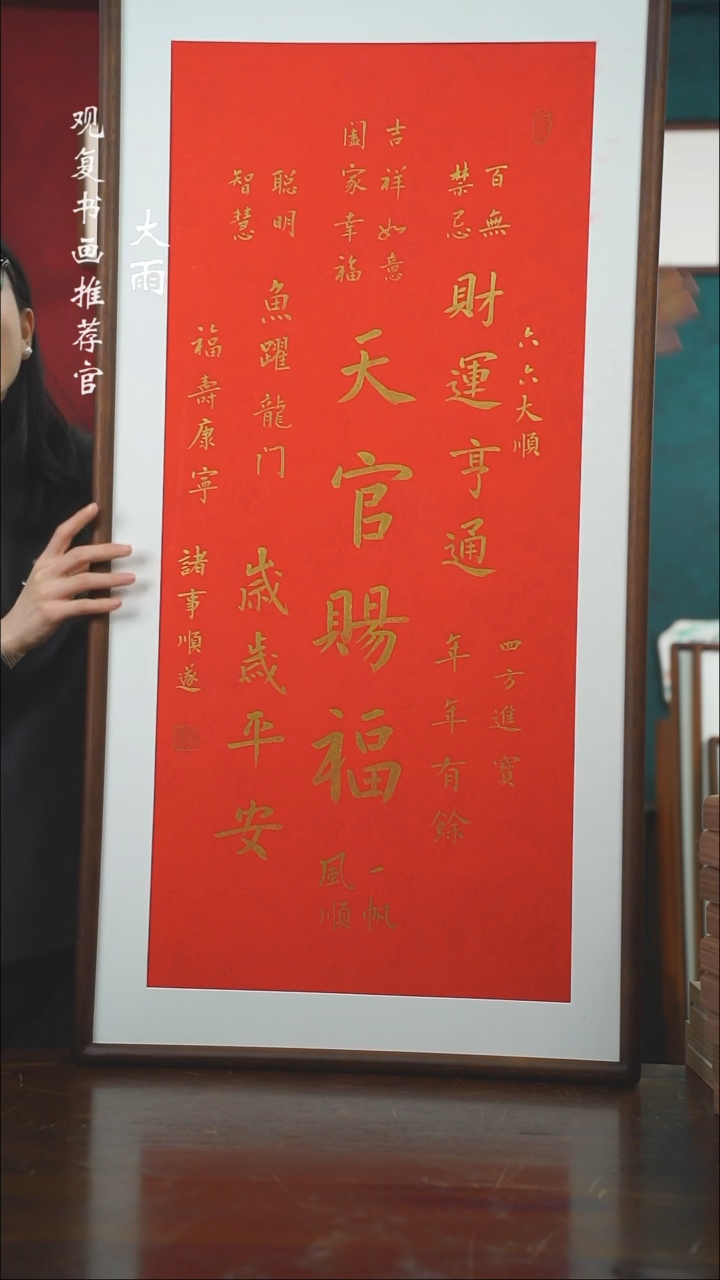 观复书画推荐官
大雨
六六大順
四方進寳
百無
禁忌
財運亨通
年年有餘
吉祥如意
阖家幸福
天官賜福
一帆
風順
聪明
智慧
魚躍龍门
歲歲平安
福壽康寧
諸事順遂